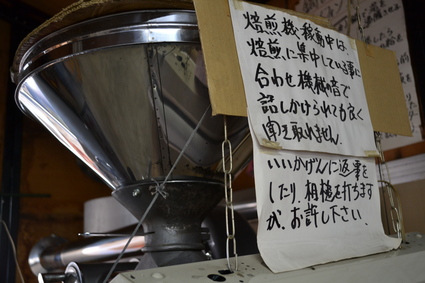 焙煎機稼動中は、
焙煎に集中している事に
合わせ機械の音で
話しかけられても良く
聞き取れません。
いいかげんに返事を
したり、相槌を打ちます
が、お許し下さい。